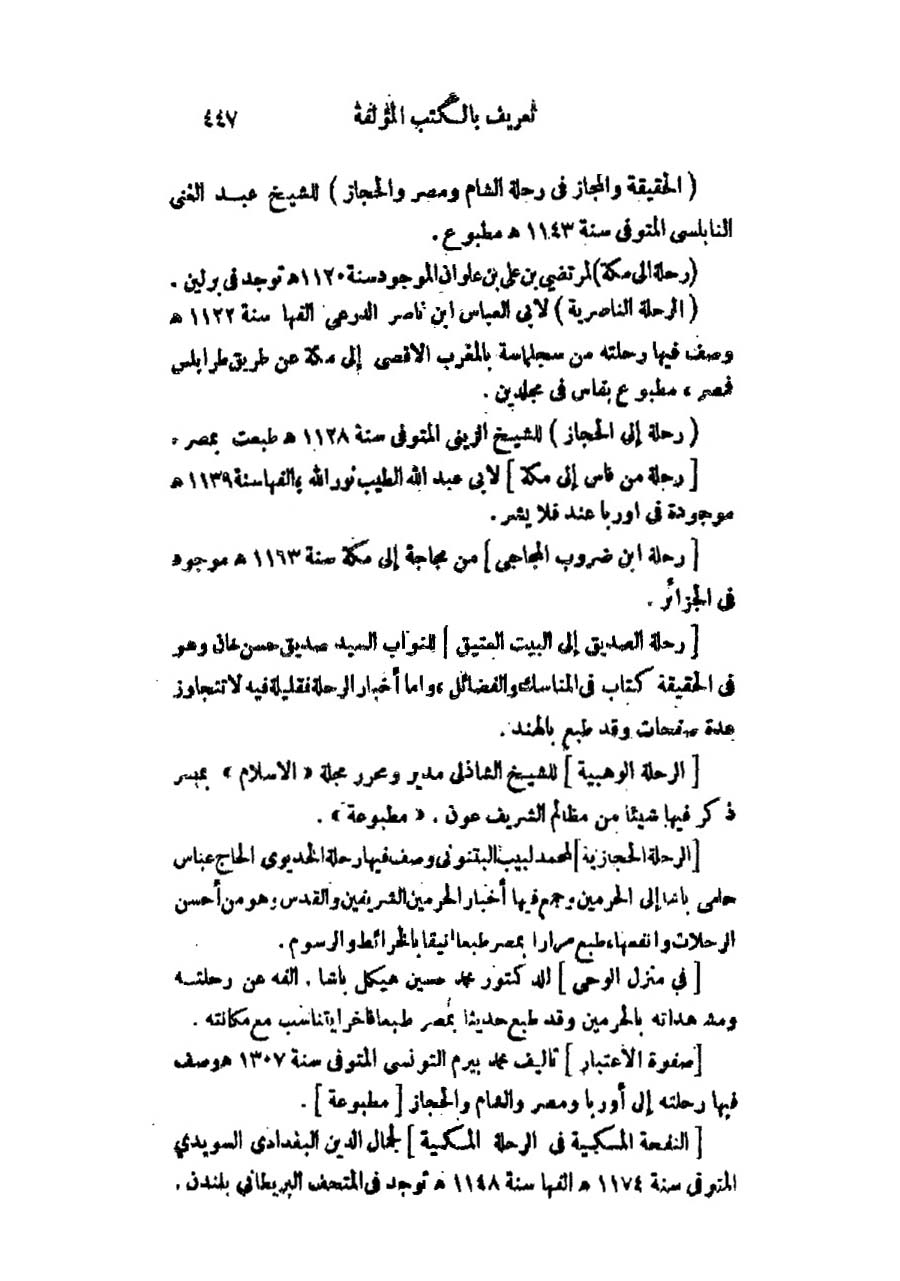 تعريف بالكتب المؤلفة ٤٤٧
( الحقيقة والمجاز فى رحلة الشام ومصر والحجاز ) للشيخ عبد الغنى
النابلسى المتوفى سنة ١١٤٣ ه مطبوع .
(رحلة الى مكة) لمرتضي بن على بن علوان الموجود سنة ١١٢٠ ه توجد فى برلين .
( الرحلة الناصرية ) لابى العباس ابن ناصر الدرعي الفها سنة ١١٢٢ ه
وصف فيها رحلته من سجلماسة بالمغرب الاقصى إلى مكة عن طريق طرابلس
فمصر ، مطبوع بفاس فى مجلدين .
( رحلة إلى الحجاز ) للشيخ الزينى المتوفى سنة ١١٢٨ ه طبعت بمصر .
[ رحلة من فاس إلى مكة ] لابى عبد الله الطيب نور الله ، الفها سنة ١١٣٩ ه
موجودة فى اوربا عند فلا يشر .
[ رحلة ابن ضروب المجاجى ] من مجاجة إلى مكة سنة ١١٦٣ ه موجود
فى الجزائر .
[ رحلة الصديق إلى البيت العتيق ] للنواب السيد صديق حسن خان وهو
فى الحقيقة كتاب فى المناسك والفضائل ، واما أخبار الرحلة فقليلة فيه لا تتجاوز
عدة صفحات وقد طبع بالهند .
[ الرحلة الوهبية ] للشيخ الشاذلى مدير ومحرر مجلة « الاسلام » بمصر
ذكر فيها شيئا من مظالم الشريف عون . « مطبوعة » .
[الرحلة الحجازية] لمحمد لبيب البتنونى وصف فيها رحلة الخديوى الحاج عباس
حلمى باشا إلى الحرمين وجمع فيها أخبار الحرمين الشريفين والقدس وهو من أحسن
الرحلات وانفعها ، طبع مرارا بمصر طبعا انيقا بالخرائط والرسوم .
[ في منزل الوحي ] للدكتور محمد حسين هيكل باشا . الفه عن رحلته
ومشهداته بالحرمين وقد طبع حديثا بمصر طبعا فاخرا يتناسب مع مكانته .
[صفوة الاعتبار ] تاليف محمد بيرم التونسى المتوفى سنة ١٣٠٧ ه وصف
فيها رحلته إلى أوربا ومصر والشام والحجاز [ مطبوعة ] .
[ النفحة المسكية فى الرحلة المكية ] لجمال الدين البغدادى السويدي
المتوفى سنة ١١٧٤ ه الفها سنة ١١٤٨ ه توجد فى المتحف البريطاني بلندن .